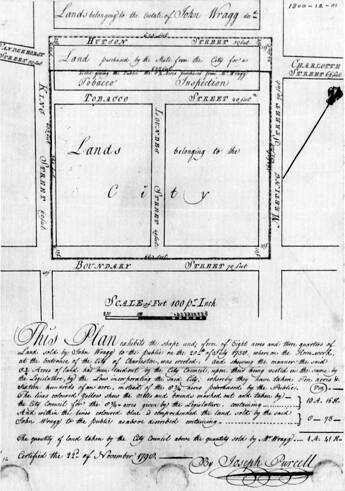 1800-12-01
Lands belonging to the Estate of John Wragg
HUTSON STREET
Land purchased by the State from the City for a
Tobacco Inspection
VANDERHORST STREET
CHARLOTTE STREET
TOBACCO STREET
KING STREET
LOUNDES STREET
MEETING STREET
Lands belonging to the
City
BOUNDARY STREET
SCALE of Feet 100 pr. Inch
This Plan exhibits the shape and form of Eight acres and three quarters of
Land sold by John Wragg to the public on the 20th of July 1758, whereon the Hornwork,
at the entrance of the City of Charleston, was erected; and shewing the manner the said
8¾ Acres of land has been laid out by the City Council, upon this being vested in the same by
the Legislature, by the Law incorporating the said City, whereby they have taken Ten acres &
sixteen hundreds of an acre, instead of the 8¾ acres purchased by the Public.
The lines coloured Yellow shew the tilts and bounds marked out and taken by
the City Council for the 8¾ acres given by the Legislature containing 10 A. 16 R.
And within the lines coloured blue is comprehended the land sold by the said
John Wragg to the public as above described containing 8 - 75 -
The quantity of land taken by the City Council above the quantity sold by Mr. Wragg 1 A. 41 R.
Certified the 22d. of November 1790.
By Joseph Purcell